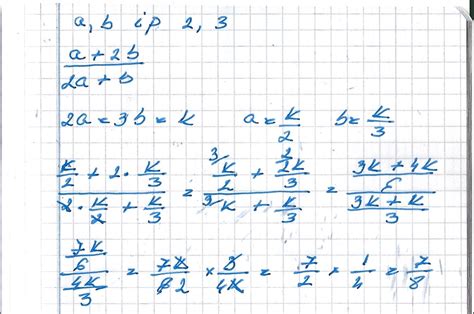 a, b ip 2, 3
a + 2b / 2a + b
2a = 3b = k a = k/2 b = k/3
(k/2 + 2 · k/3) / (2 · k/2 + k/3) = (3/ k/2 + 2/ 2k/3) / (3/ k + k/3) = ((3k + 4k)/6) / ((3k + k)/3)
(7k/6) / (4k/3) = 7k/6 2 × 3/4k = 7/2 × 1/4 = 7/8